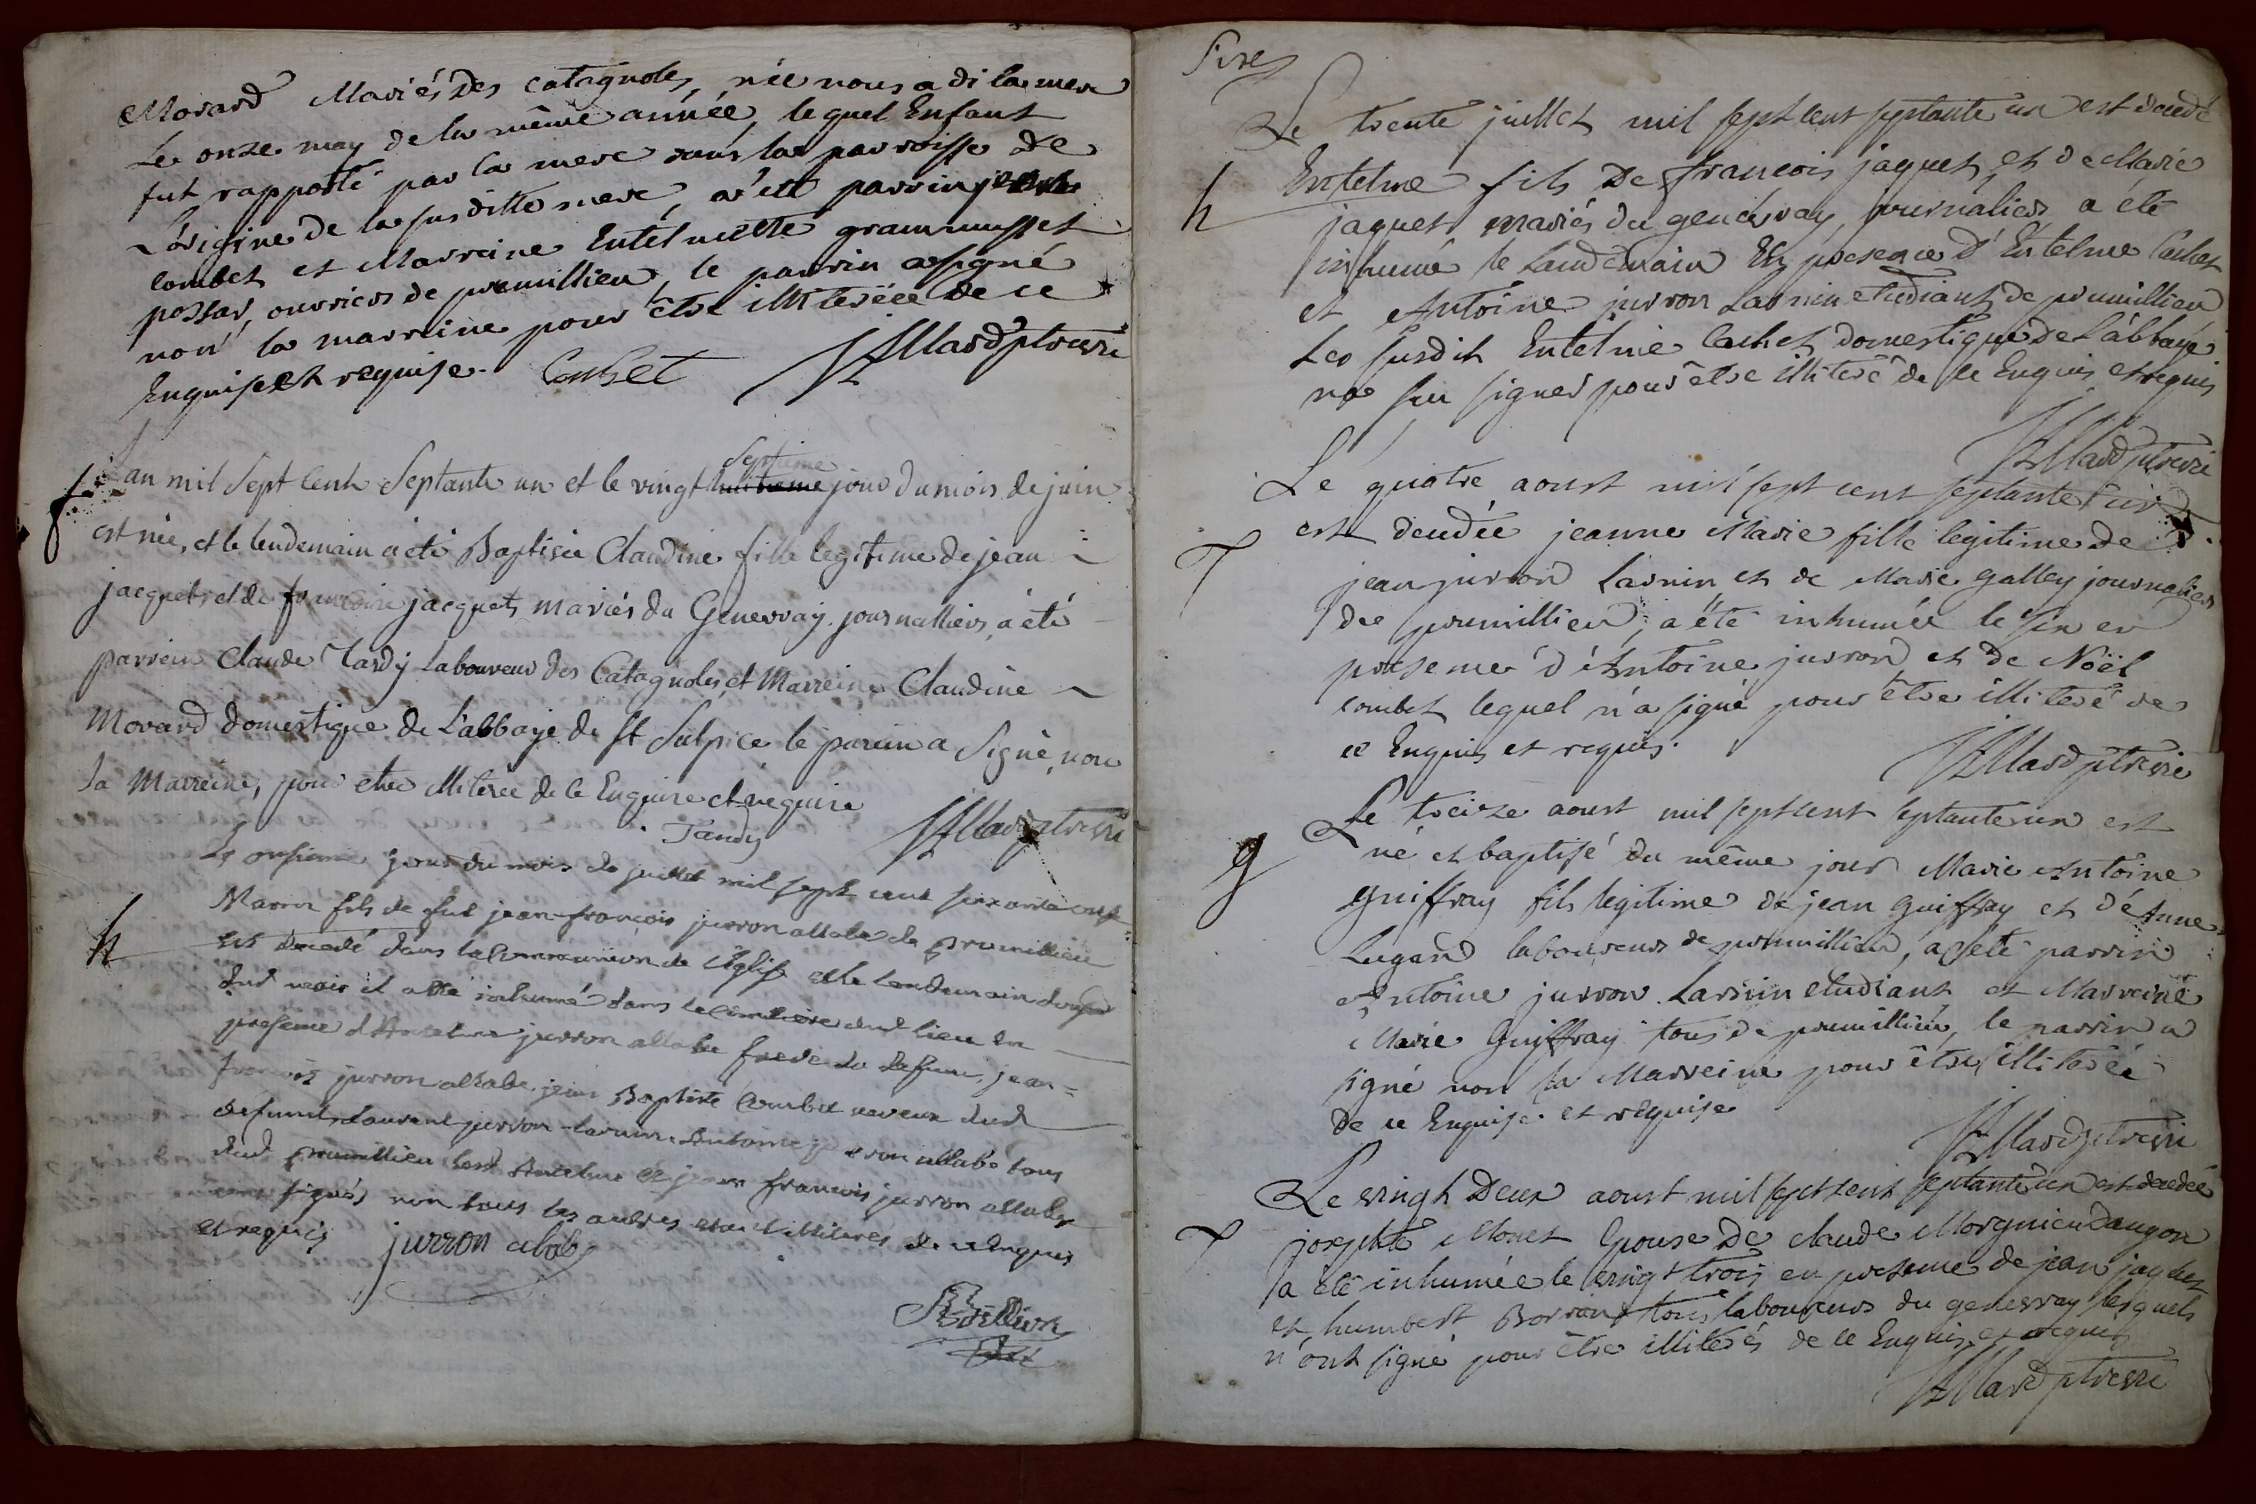 Morard Mariés Des catagnoles, née nous a di la mere
Le onze may de la même année, lequel Enfant
fut rapporté par la mere dans la parroisse de
L'origine de la susditte mere, a été parrin
combet et Marreine Entelmette grammusset
possar, ouvriers de premillieu, le parrin a signé
non la marreine pour être illiterée de ce
Enquise et requise. Combet Allard ptre curé
L'an mil sept cent septante un et le vingt septieme jour du mois de juin
est née, et le lendemain a été Baptisée Claudine fille legitime de jean
jacquet, et de françoise jacquet, mariés du Genevray journalliers, a été
parrein Claude Tardy Laboureur des Catagnoles, et Marreine Claudine
Morard domestique de L'abbaye de St Sulpice le parein a signé, non
la Marreine, pour etre illiterée de ce Enquise et requise
Tardy Allard ptre curé
Le onsieme jour du mois de juillet mil sept cent septante un
h
Marin fils de fut jean-françois jurron allabe de premillieu
est decedé dans la Communion de l'Eglise et le lendemain du
dud mois il a été inhumé dans le cimetiere dud lieu en
presence d'Anselme jurron allabe frere du defunt, jean-
françois jurron allabe, jean Baptiste Combet neveux dud
defunt, Laurent jurron-larnin, Antoine jurron allabe tous
dud premillieu Lesd Anselme et jean françois jurron allabe
ont signés non tous les autres etant illiterés de ce Enquis
et requis jurron alabe
Le trente juillet mil sept cent septante un est decedé
h
Entelme fils de françois jaquet, et de Marie
jaquet mariés du genevray, journaliers a été
inhumé le landemain En presence d'Entelme Cachet
et Antoine jurron Larnin etudiant, de premillieu
Le susdit Entelme Cachet domestique de L'abbaye
na su signer pour être illiteré de ce Enquis et requis
Allard ptre curé
Le quatre aoust mil sept cent septante un
est decedée jeanne Marie fille legitime de
jean jurron Larnin et de Marie galley journaliers
de premillieu, a été inhumée le six en
presence d'Antoine jurron et de Noël
combet lequel n'a signé pour être illiteré de
ce Enquis et requis.
Allard ptre curé
Le treize aoust mil sept cent septante un est
g
né et baptisé du même jour Marie Antoine
guiffray fils legitime de jean guiffray et d'Anne
Lugand laboureurs de premillieu, a été parrin
Antoine jurron Larnin etudiant et Marreine
Marie Guiffray tous de premillieu, le parrin a
signé non la Marreine pour être illiterée
de ce Enquise et requise
Allard ptre curé
Le vingt Deux aoust mil sept cent septante un est decedée
josephte Monet Epouse De claude Morgnieu Daugon
a été inhumée le vingt trois en presence de jean jaquet
et humbert Borron tous laboureurs du genevray lesquels
n'ont signé pour être illiterés de ce Enquis et requis
Allard ptre curé